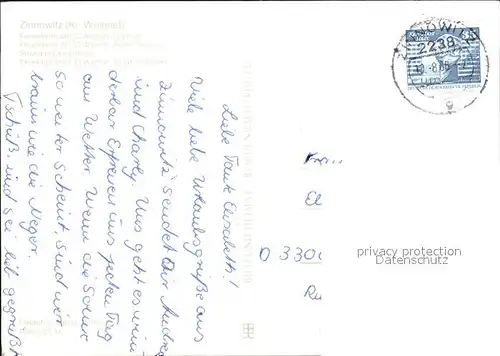 Zinnowitz (Kr. Wolgast)
Liebe Tante Elisabeth!
Viele liebe Urlaubsgrüße aus
Zinnowitz sendet Dir Andrea
und Charly. Uns geht es wun-
derbar. Erfreuen uns jeden Tag
am Wetter. Wenn die Sonne
so weiter scheint, sind wir
braun wie die Neger.
Tschüß, und sei lieb gegrüßt
ZINNOWITZ
2238
Frau
El
O 330
Ru
privacy protection
Datenschutz